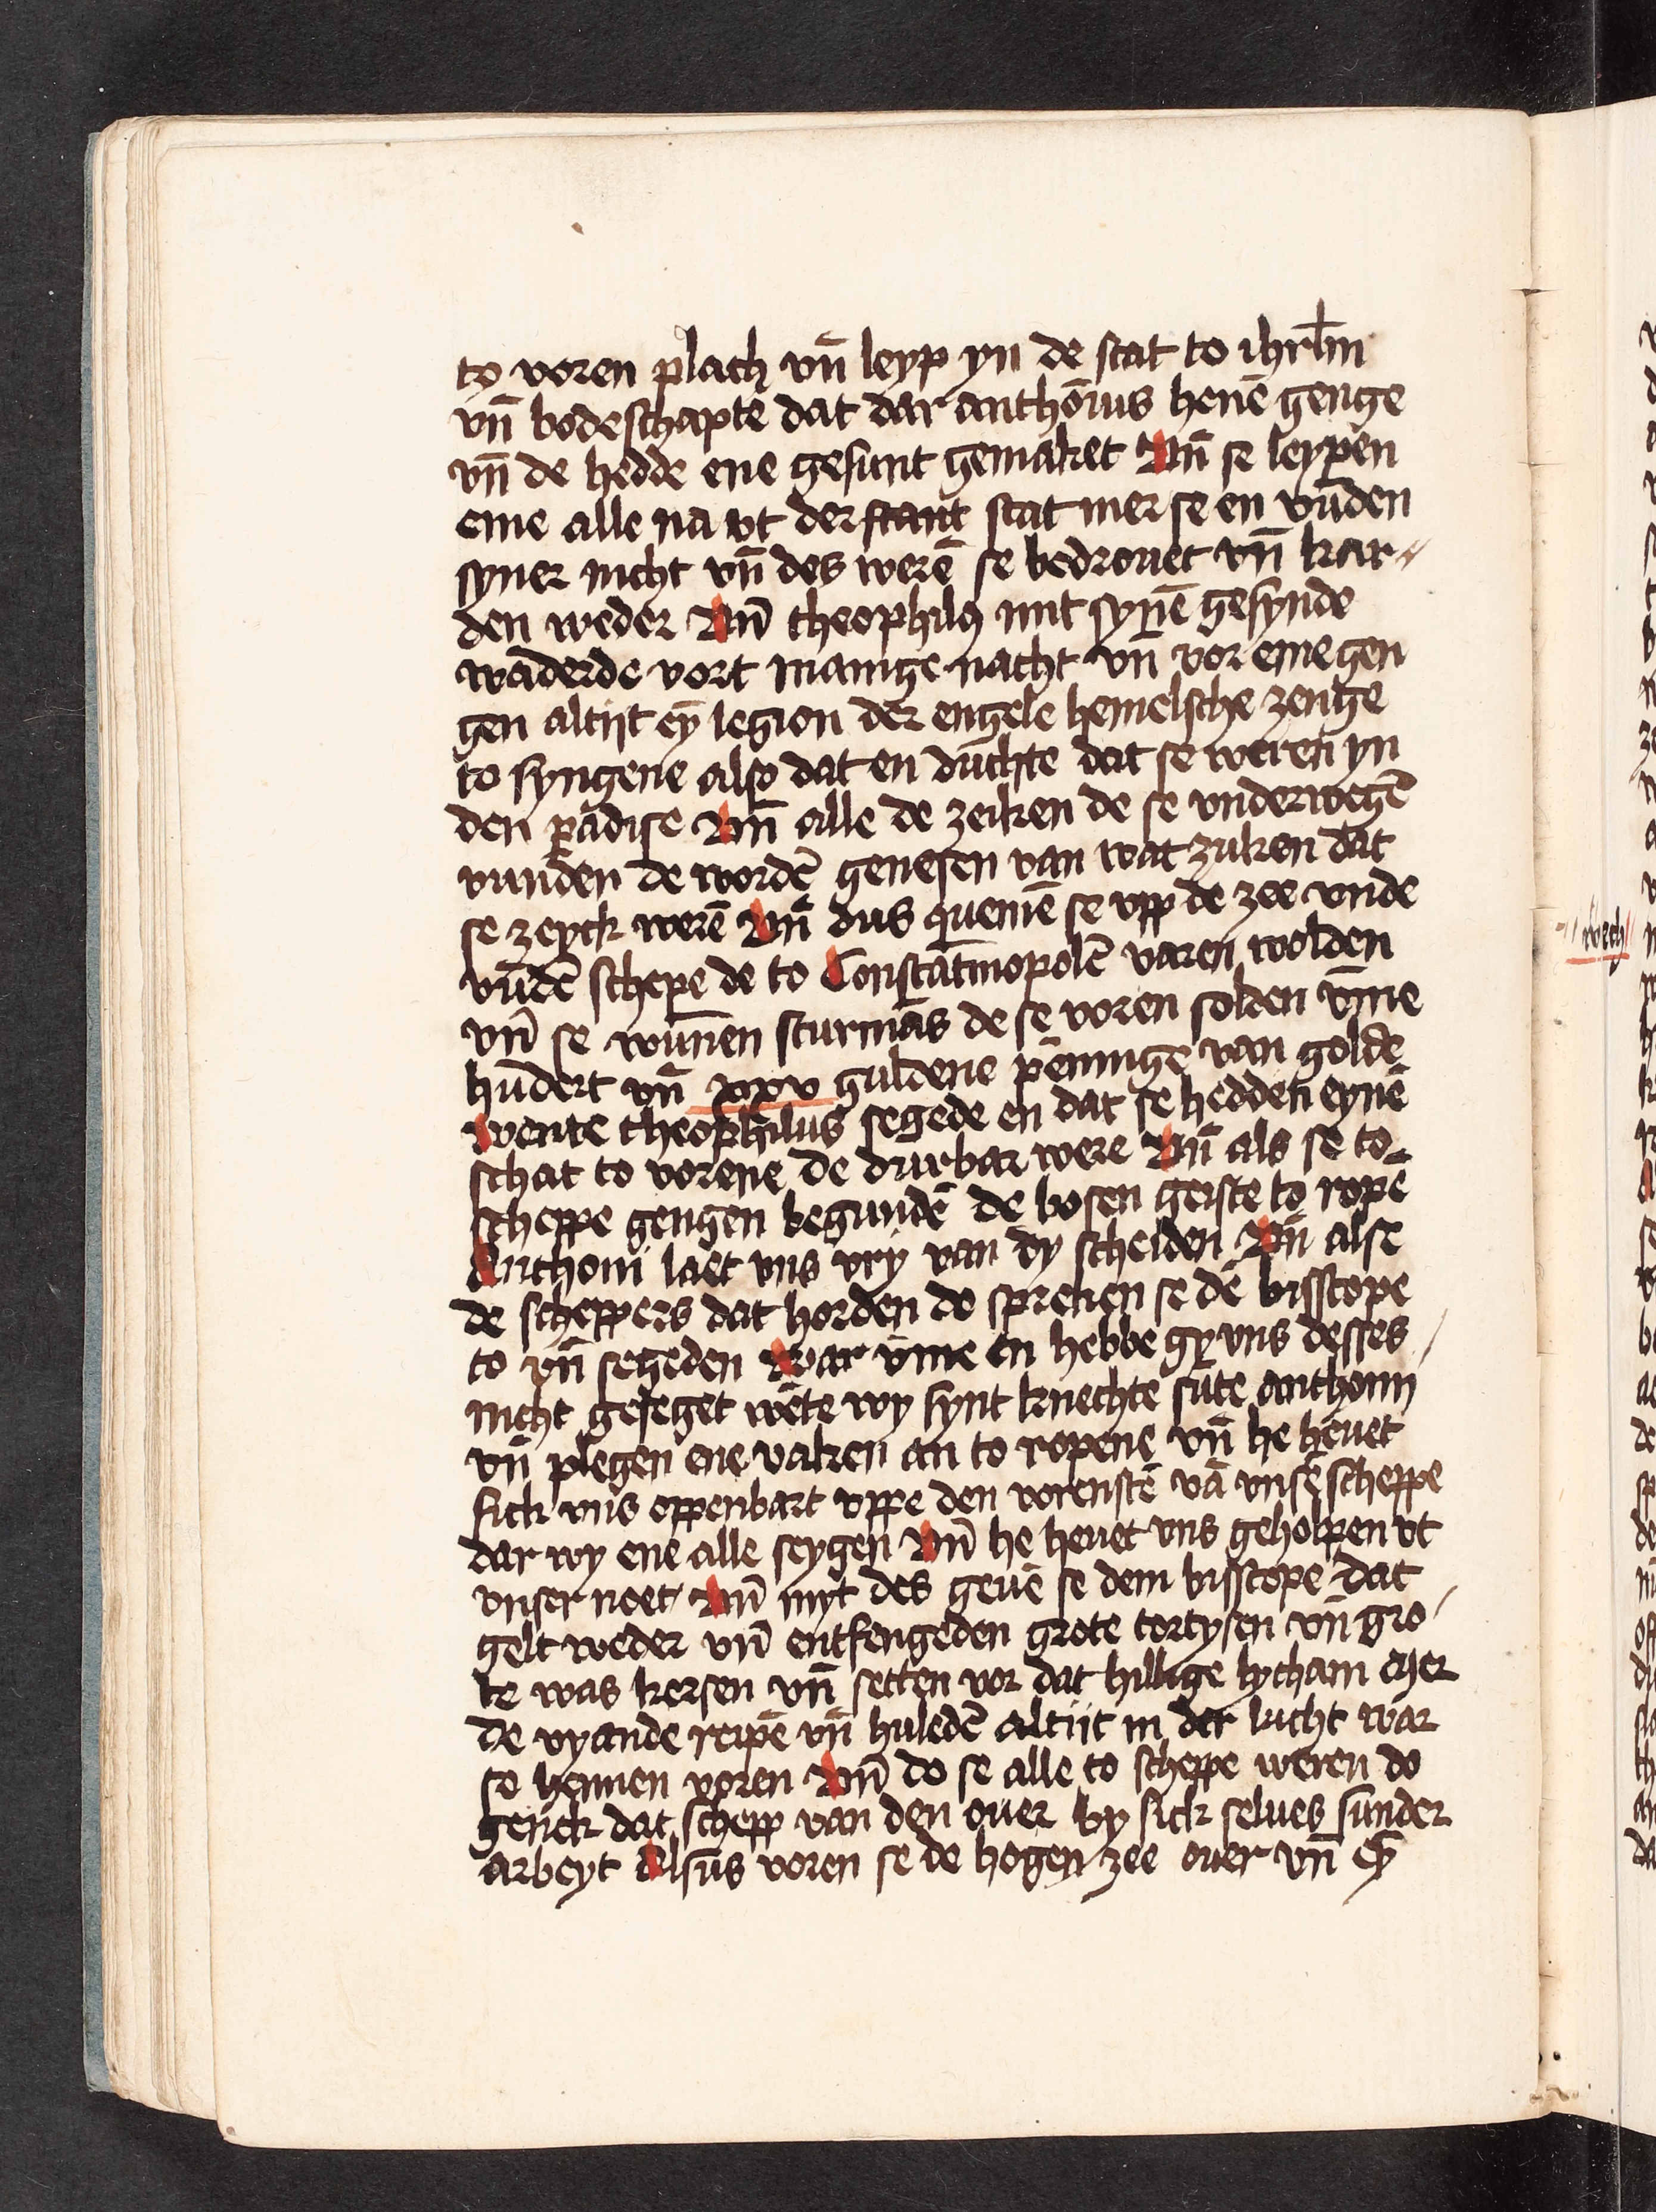 to voren plach vn̄ leyp yn de stat to ihrl̄m
vn̄ bodeschapte dat dar anthōius henē genge
vn̄ de hedde ene gesunt gemaket Vn̄ se leypen
eme alle na vt der stant stat mer se en vūden
syner nicht vn̄ des werē se bedrouet vn̄ kar⸗
den weder Vn̄ theophilꝰ mit synē gesynde
waderde vort mannige nacht vn̄ vor eme gen
gen altijt eȳ legion der engele hemelsche zenge
to syngene also dat en duchte dat se weren yn
den pādise Vn̄ alle de zeiken de se vnderwegē
vunden de wordē genesen van wat zuken dat
se zeyck werē Vn̄ dus quemē se vpp de zee vnde
vūdē schepe de to Constātinopolē varen wolden
vn̄ se wūnen sturmās de se voren solden v̄me
hūdert vn̄ xxv guldene penninge van golde
Wente theophilus segede en dat se hedden eynē
schat to vorene de durbar were Vn̄ als se to-
scheppe gengen begundē de bosen geiste to ropē
Anthoni laet vns vry van dy scheiden Vn̄ alse
de scheppers dat horden do spreken se dē bisscope
to vn̄ segeden War v̄me en hebbe gy vns desses
nicht geseget wēte wy synt knechte sūte anthonij
vn̄ plegen ene vaken an to ropene vn̄ he heuet
sick vns oppenbart vppe den vorenstē vā vnsē scheppe
dar wy ene alle seygen Vn̄ he heuet vns geholpen vt
vnser noet Vn̄ myt des geuē se dem bisscope dat
gelt weder vn̄ entfengeden grote tortysen vn̄ gro
te was kersen vn̄ setten vor dat hillige lycham Mer
de vyande reipē vn̄ huledē altijt in der lucht war
se hennen voren Vn̄ do se alle to scheppe weren do
genck dat schepp van den ouer by sick selues sunder
arbeyt Alsus voren se de hogen zee ouer vn̄ Eȳ
wech